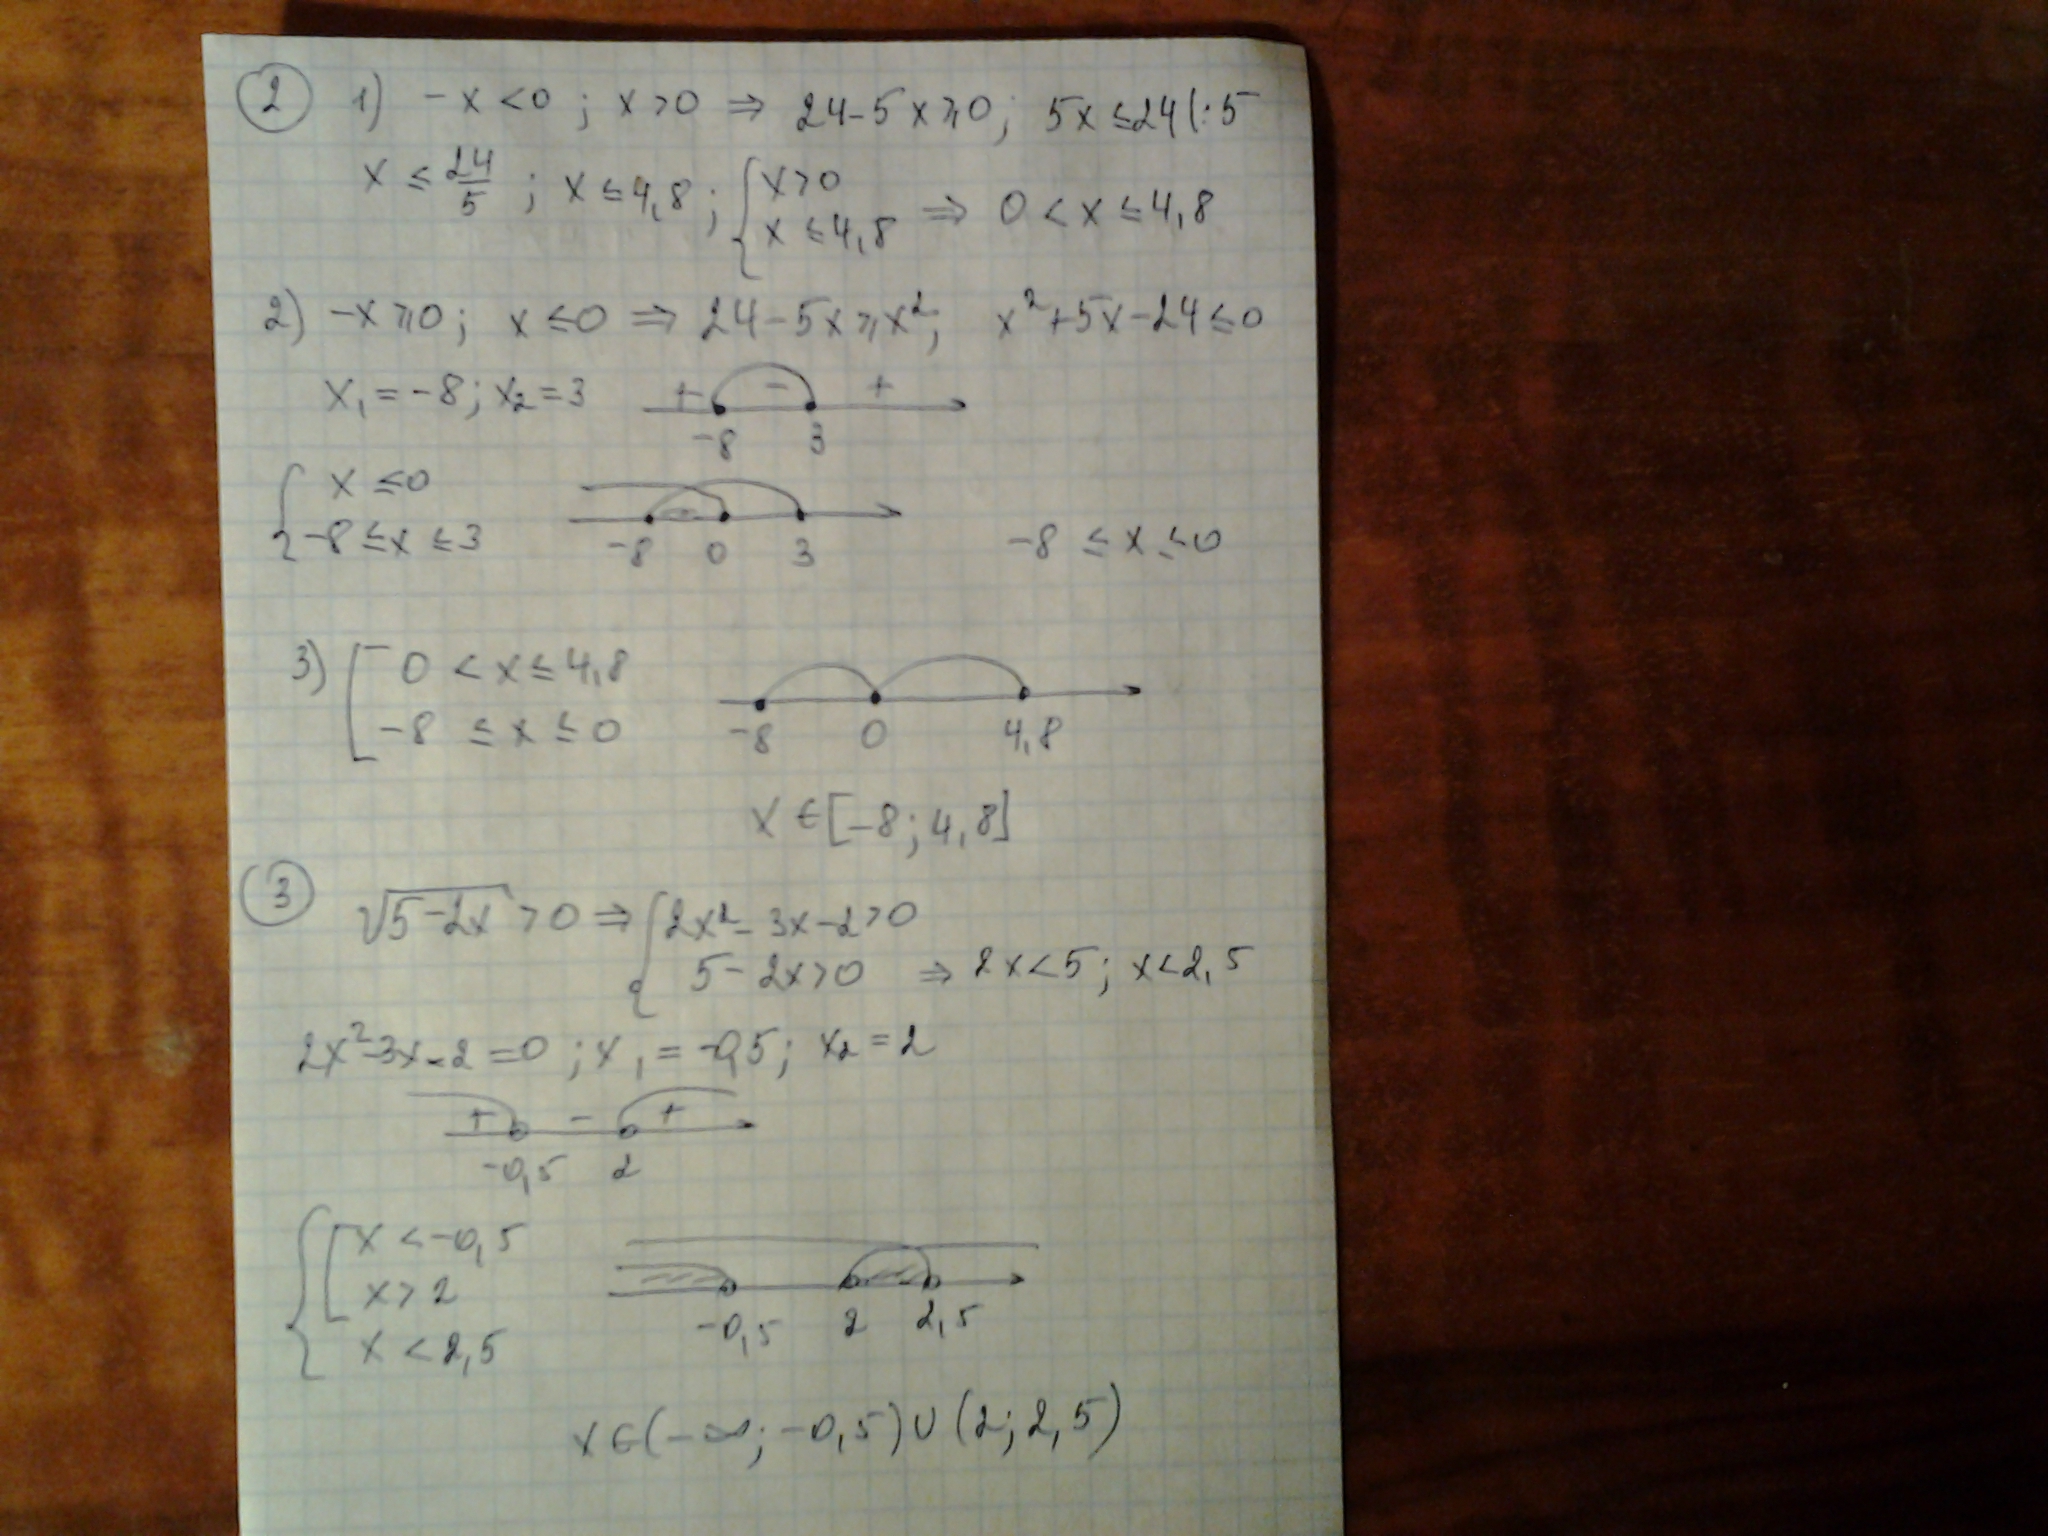 ② 1) -x<0 ; x>0 ⇒ 24-5x⩾0; 5x≤24 |:5
x ≤ 24/5 ; x≤4,8 ; { x>0
x≤4,8 ⇒ 0<x≤4,8
2) -x⩾0; x≤0 ⇒ 24-5x⩾x²; x²+5x-24≤0
x₁=-8; x₂=3 + - +
-8 3
{ x≤0
-8≤x≤3 -8 0 3 -8≤x≤0
3) [ 0<x≤4,8
-8≤x≤0 -8 0 4,8
x∈[-8; 4,8]
③ √(5-2x) >0 ⇒ { 2x²-3x-2>0
5-2x>0 ⇒ 2x<5; x<2,5
2x²-3x-2=0 ; x₁=-0,5; x₂=2
+ - +
-0,5 2
{ [ x<-0,5
x>2
x<2,5 -0,5 2 2,5
x∈(-∞; -0,5)∪(2; 2,5)